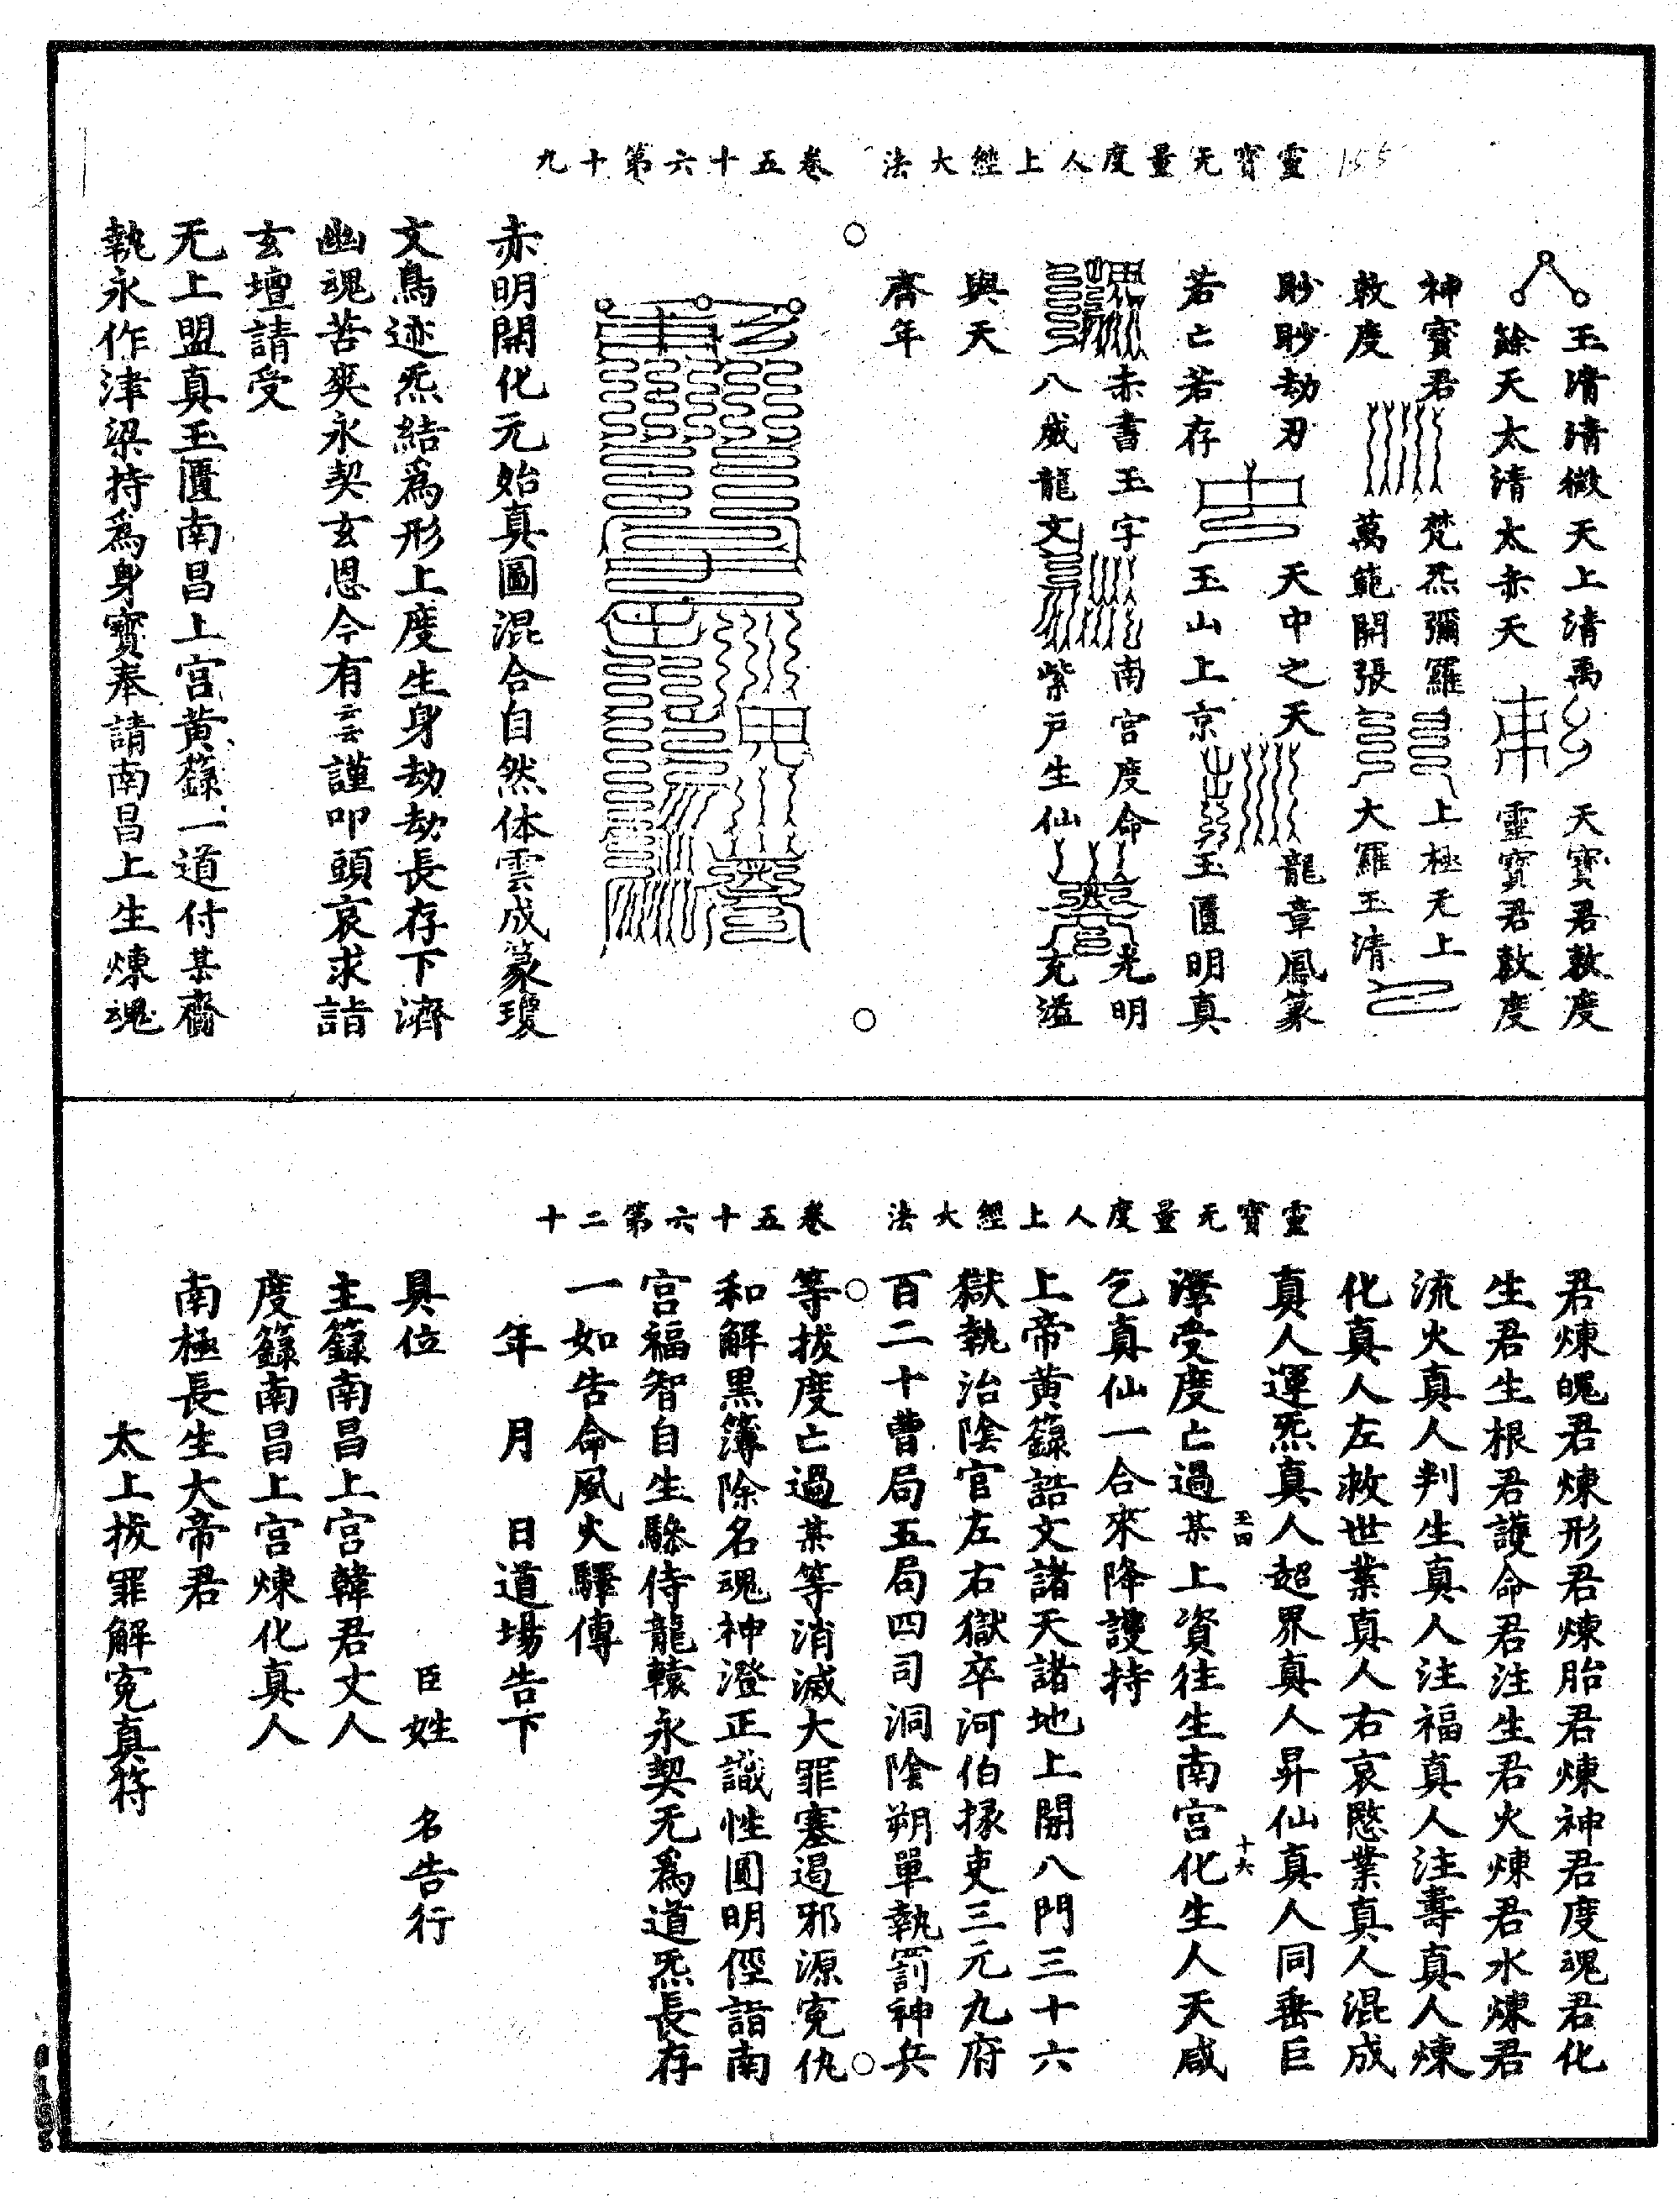 靈寶无量度人上經大法　卷五十六第十九
155
玉清清微天上清禹　天寶君敕度
餘天太清太赤天　靈寶君敕度
神寶君　梵炁彌羅　上極无上
敕度　萬範開張　大羅玉清
眇眇劫刃　天中之天　龍章鳳篆
若亡若存　玉山上京　玉匱明真
赤書玉字　南宮度命　光明
八威龍文　紫戶生仙　充溢
與天
齊年
赤明開化元始真圖混合自然体雲成篆瓊
文鳥迹炁結爲形上度生身劫劫長存下濟
幽魂苦爽永契玄恩今有云云謹叩頭哀求詣
玄壇請受
无上盟真玉匱南昌上宮黃籙一道付某齋
執永作津梁持爲身寶奉請南昌上生煉魂
靈寶无量度人上經大法　卷五十六第二十
君煉魄君煉形君煉胎君煉神君度魂君化
生君生根君護命君注生君火煉君水煉君
流火真人判生真人注福真人注壽真人煉
化真人左救世業真人右哀愍業真人混成
真人運炁真人超界真人昇仙真人同垂巨
澤受度亡過某上資往生南宮化生人天咸
乞真仙一合來降護持
上帝黃籙誥文諸天諸地上開八門三十六
獄執治陰官左右獄卒河伯掾吏三元九府
百二十曹局五局四司洞陰朔單執罰神兵
等拔度亡過某等消滅大罪塞遏邪源冤仇
和解黑簿除名魂神澄正識性圓明徑詣南
宮福智自生驂侍龍轅永契无爲道炁長存
一如告命風火驛傳
年　月　日道場告下
具位　臣姓　名告行
主籙南昌上宮韓君丈人
度籙南昌上宮煉化真人
南極長生大帝君
太上拔罪解冤真符